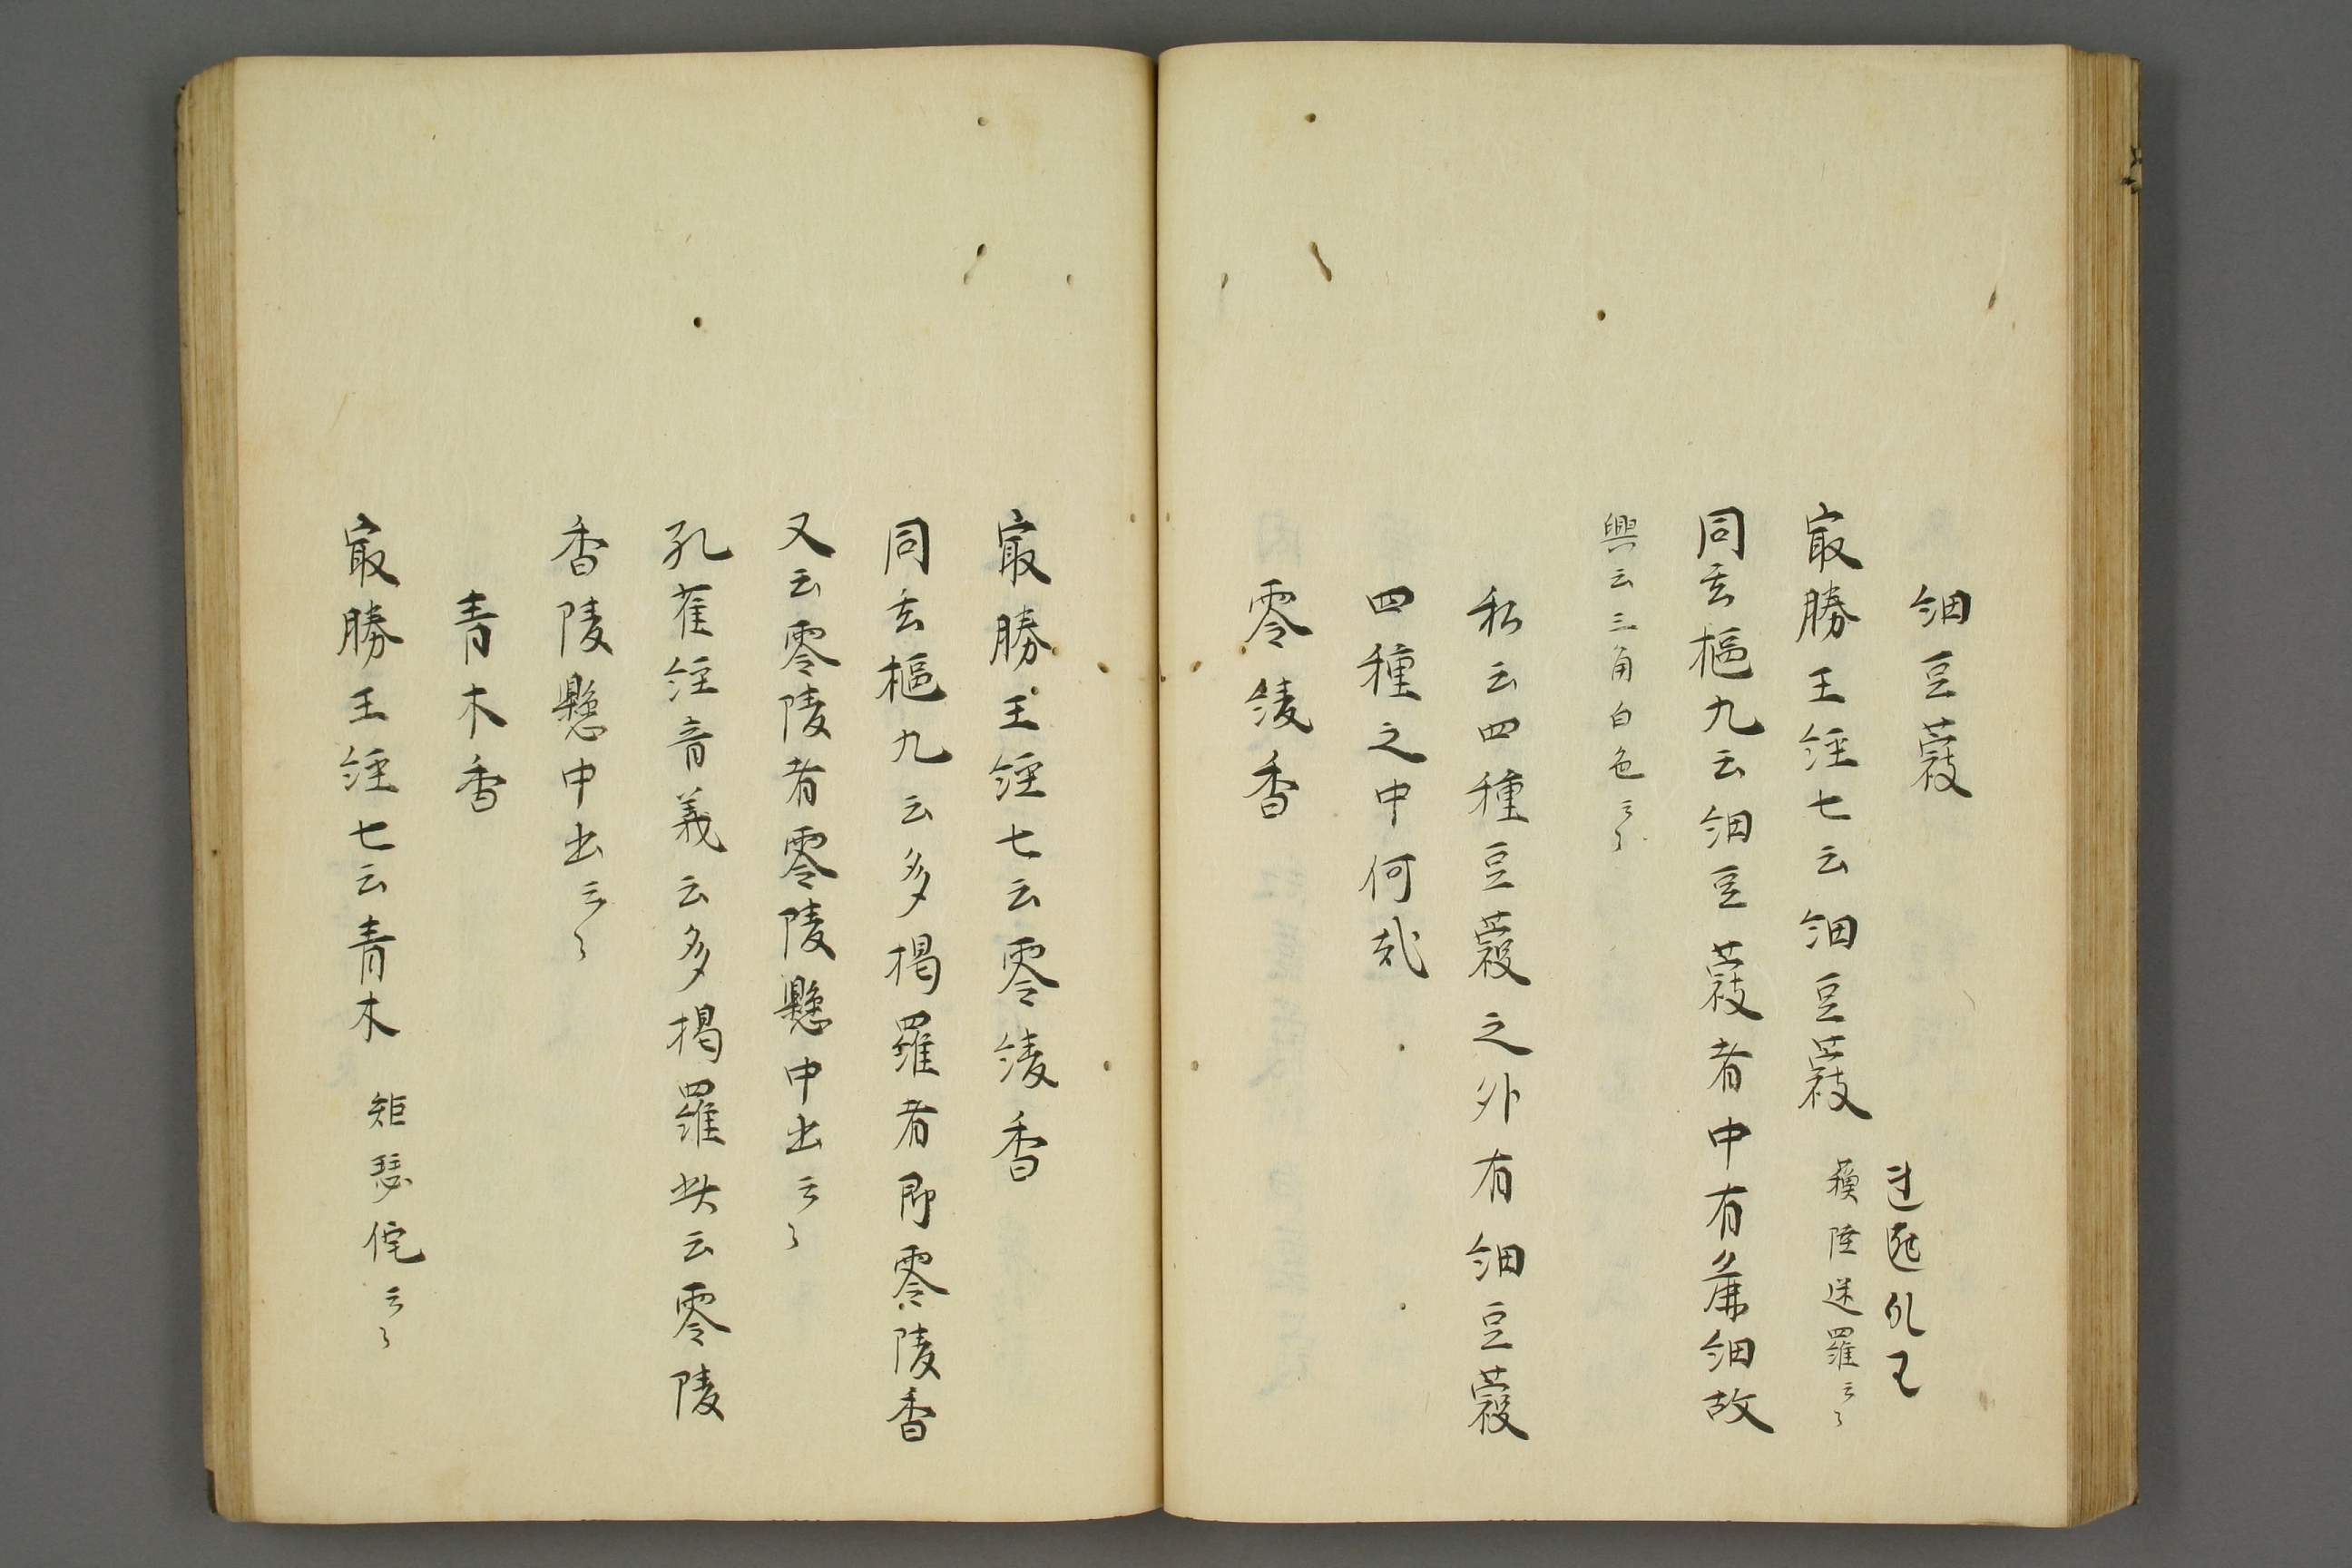 細豆蔲
最勝王經七云細豆蔲 蘇陸迷羅云々
同玄樞九云細豆蔲者中有麁細故
興云三角白色云々
私云四種豆蔲之外有細豆蔲
四種之中何哉
零綾香
最勝王經七云零綾香
同玄樞九云多揭羅者即零陵香
又云零陵者零陵懸中出云々
孔雀經音義云多揭羅此云零陵
香陵懸中出云々
青木香
最勝王經七云青木 矩瑟侘云々